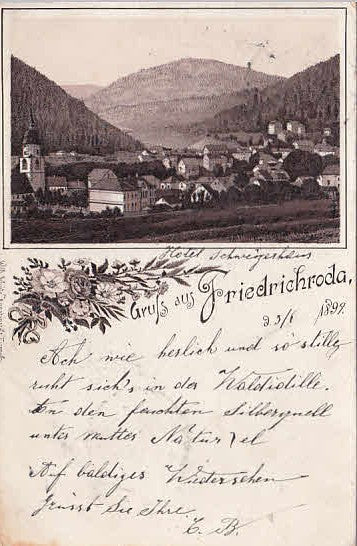 Hotel Schweizerhaus
Gruß aus Friedrichroda,
d 3/8 1899.
Ach wie herlich und so stille
ruht sich's in der Waldidille.
an den feuchten Silberquell
unter mutter Natur
Auf baldiges Wiedersehen
Grüsst Sie Ihre
C. B.